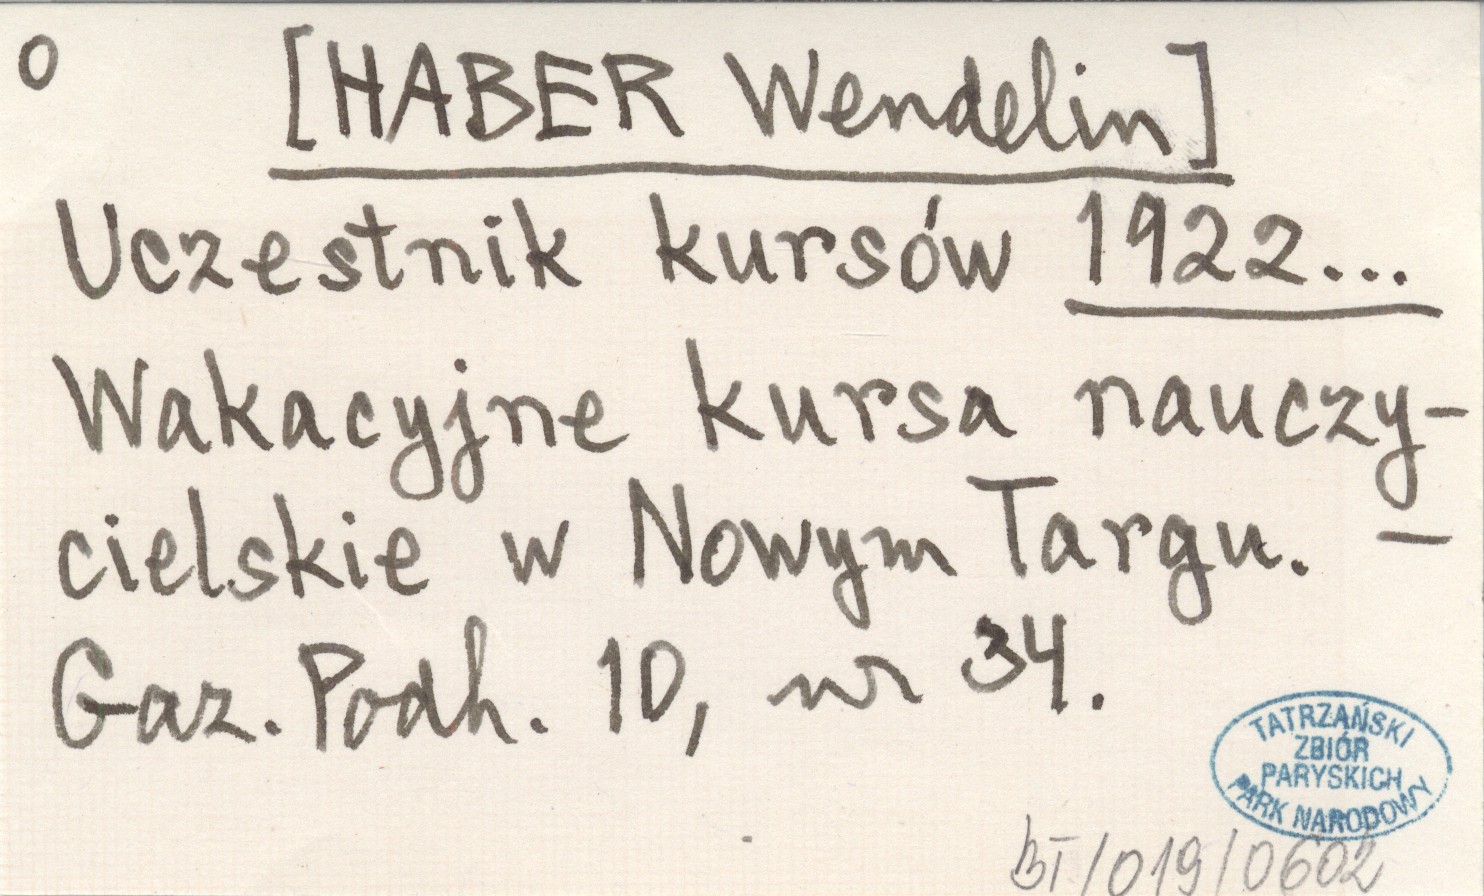 o [HABER Wendelin]
Uczestnik kursów 1922...
Wakacyjne kursa nauczy-
cielskie w Nowym Targu. –
Gaz. Podh. 10, nr 34.
TATRZAŃSKI
ZBIÓR
PARYSKICH
PARK NARODOWY
BT/019/0602